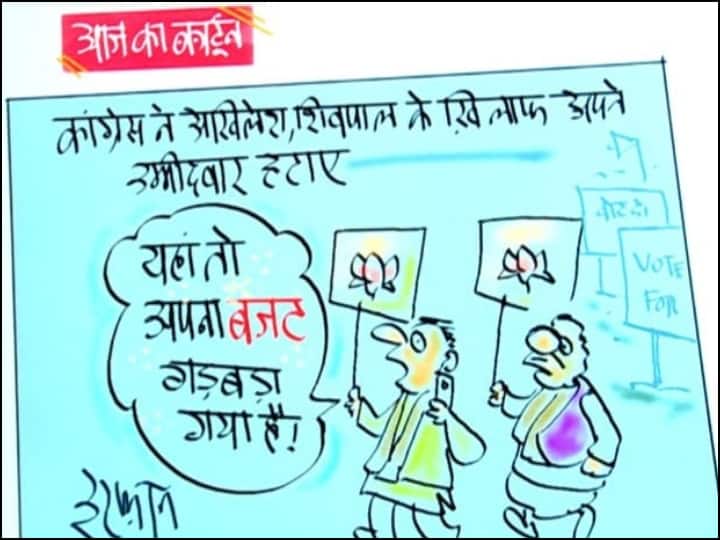 आज का कार्टून
कांग्रेस ने अखिलेश, शिवपाल के ख़िलाफ अपने
उम्मीदवार हटाए
यहां तो
अपना बजट
गड़बड़ा
गया है!
वोट दो
VOTE
FOR
इरफ़ान